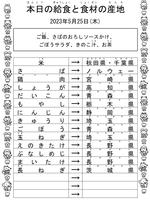 本日の給食と食材の産地
2023年5月25日(木)
ご飯、さばのおろしソースかけ、
ごぼうサラダ、きのこ汁、お茶
米 → 秋田県・千葉県
さば → ノルウェー
鶏肉 →
しょうが → 高知県
だいこん →
もやし → 栃木県
にんじん → 徳島県
ごぼう → 青森県
玉ねぎ →
えのきたけ → 長野県
ぶなしめじ → 長野県
まいたけ →
長ねぎ → 茨城県